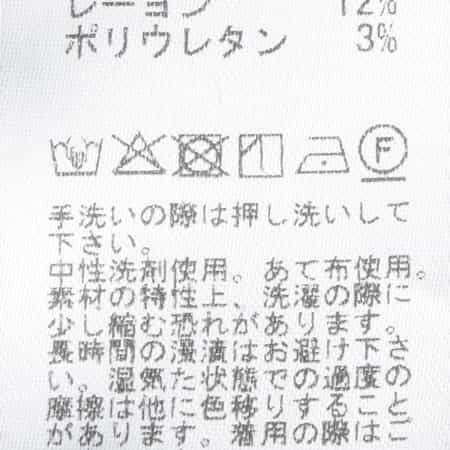 レーヨン 12%
ポリウレタン 3%
F
手洗いの際は押し洗いして
下さい。
中性洗剤使用。あて布使用。
素材の特性上、洗濯の際に
少し縮む恐れがあります。
長時間の浸漬はお避け下さ
い。湿気た状態での過度の
摩擦は他に色移りすること
があります。着用の際はご